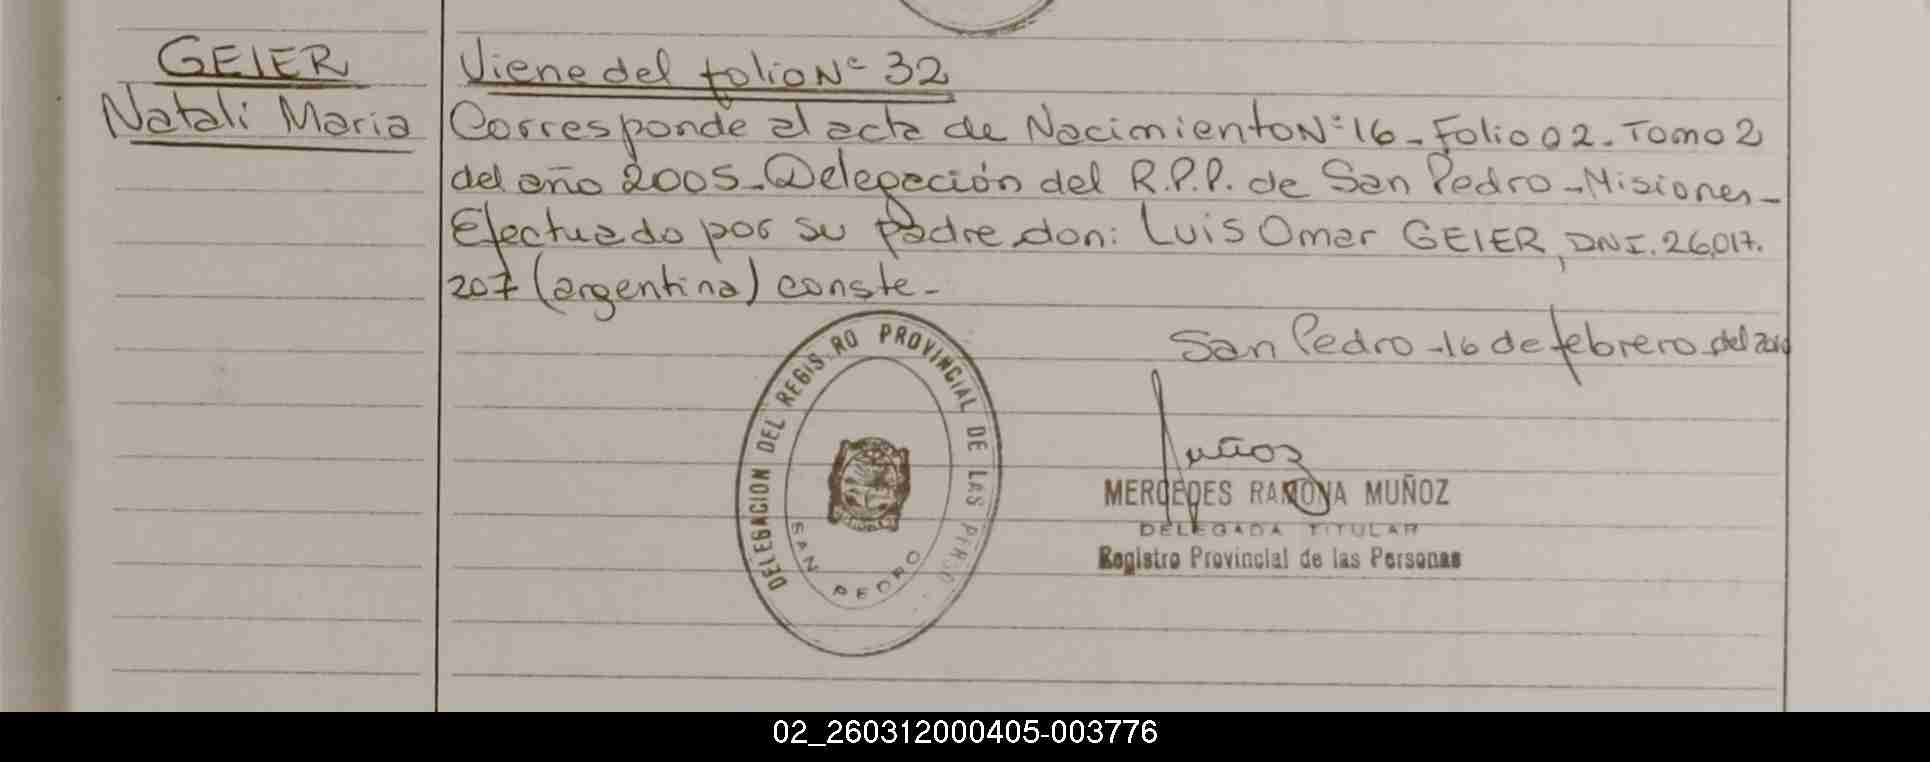 GEIER
Natali Maria
Viene del folio Nº 32
Corresponde al acta de Nacimiento Nº 16 - Folio 02 - Tomo 2
del año 2005 - Delegación del R.P.P. de San Pedro - Misiones -
Efectuado por su padre don: Luis Omar GEIER, DNI. 26.017.
207 (argentina) conste -
San Pedro - 16 de febrero del
DELEGACION DEL REGIS RO PROVINCIAL DE LAS PERSO
SAN PEDRO
Muñoz
MERCEDES RAMONA MUÑOZ
DELEGADA TITULAR
Registro Provincial de las Personas
02_260312000405-003776